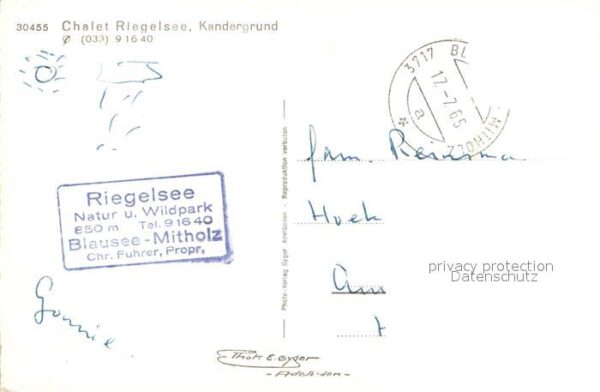 30455 Chalet Riegelsee, Kandergrund
(033) 9 16 40
3717 BL
17.-7.65
a
MITHOLZ
Riegelsee
Natur u. Wildpark
850 m Tel. 9 16 40
Blausee-Mitholz
Chr. Fuhrer, Propr.
Fam. Reizsma
Hoek
privacy protection
Datenschutz
Photo-Verlag Gyger Adelboden - Reproduktion verboten
Gonnie.
Phot. E. Gyger
-Adelboden-